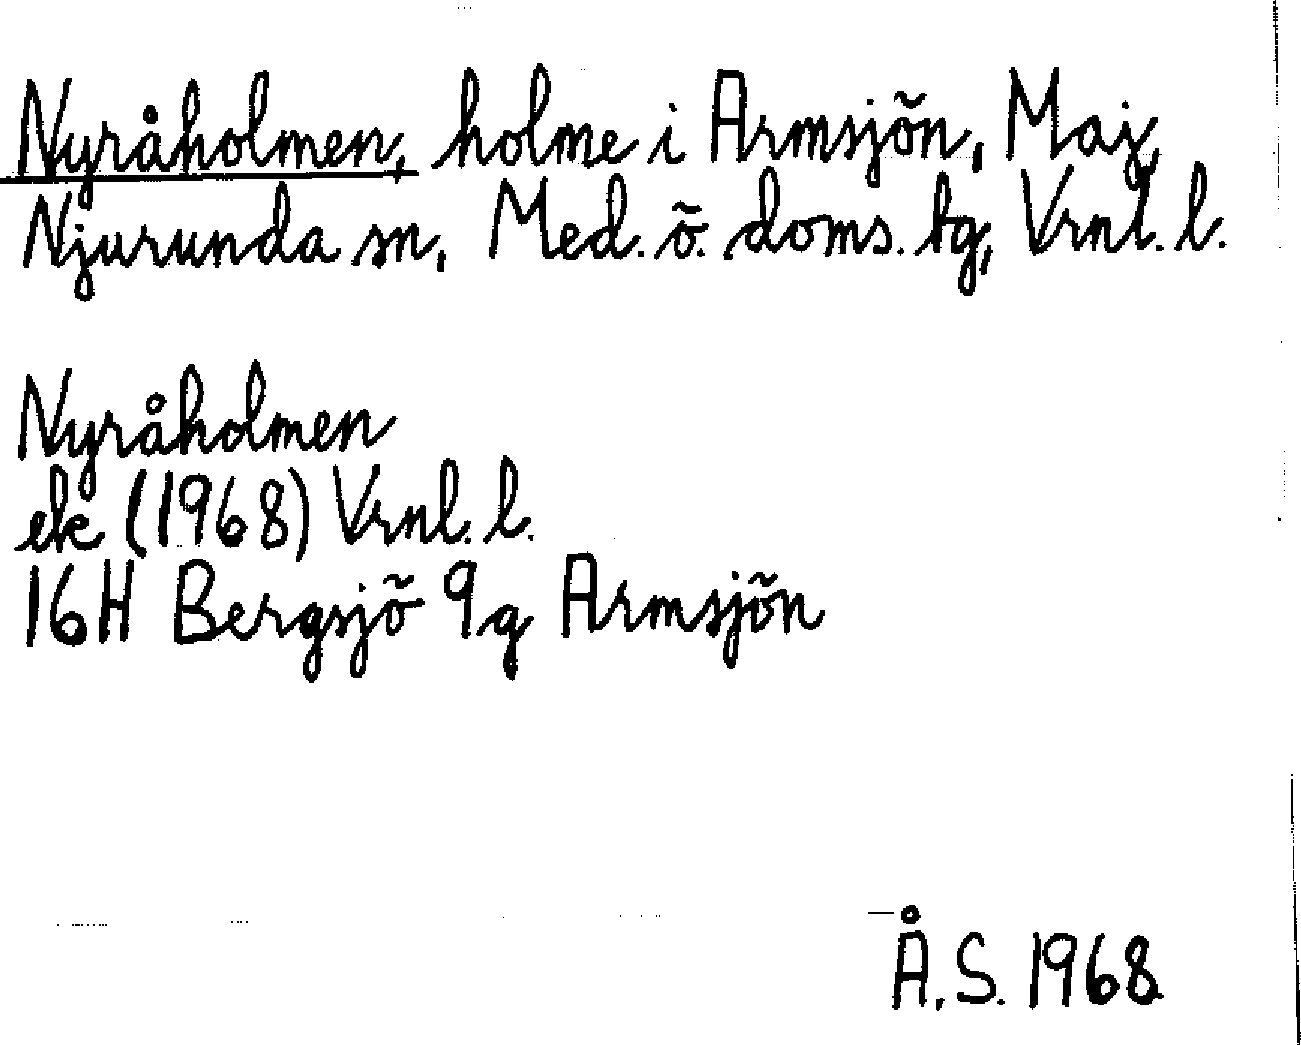 Nyråholmen, holme i Armsjön, Maj,
Njurunda sn, Med. ö. doms. tg, Vrnl. l.
Nyråholmen
ek (1968) Vrnl. l.
16H Bergsjö 9g Armsjön
Å. S. 1968